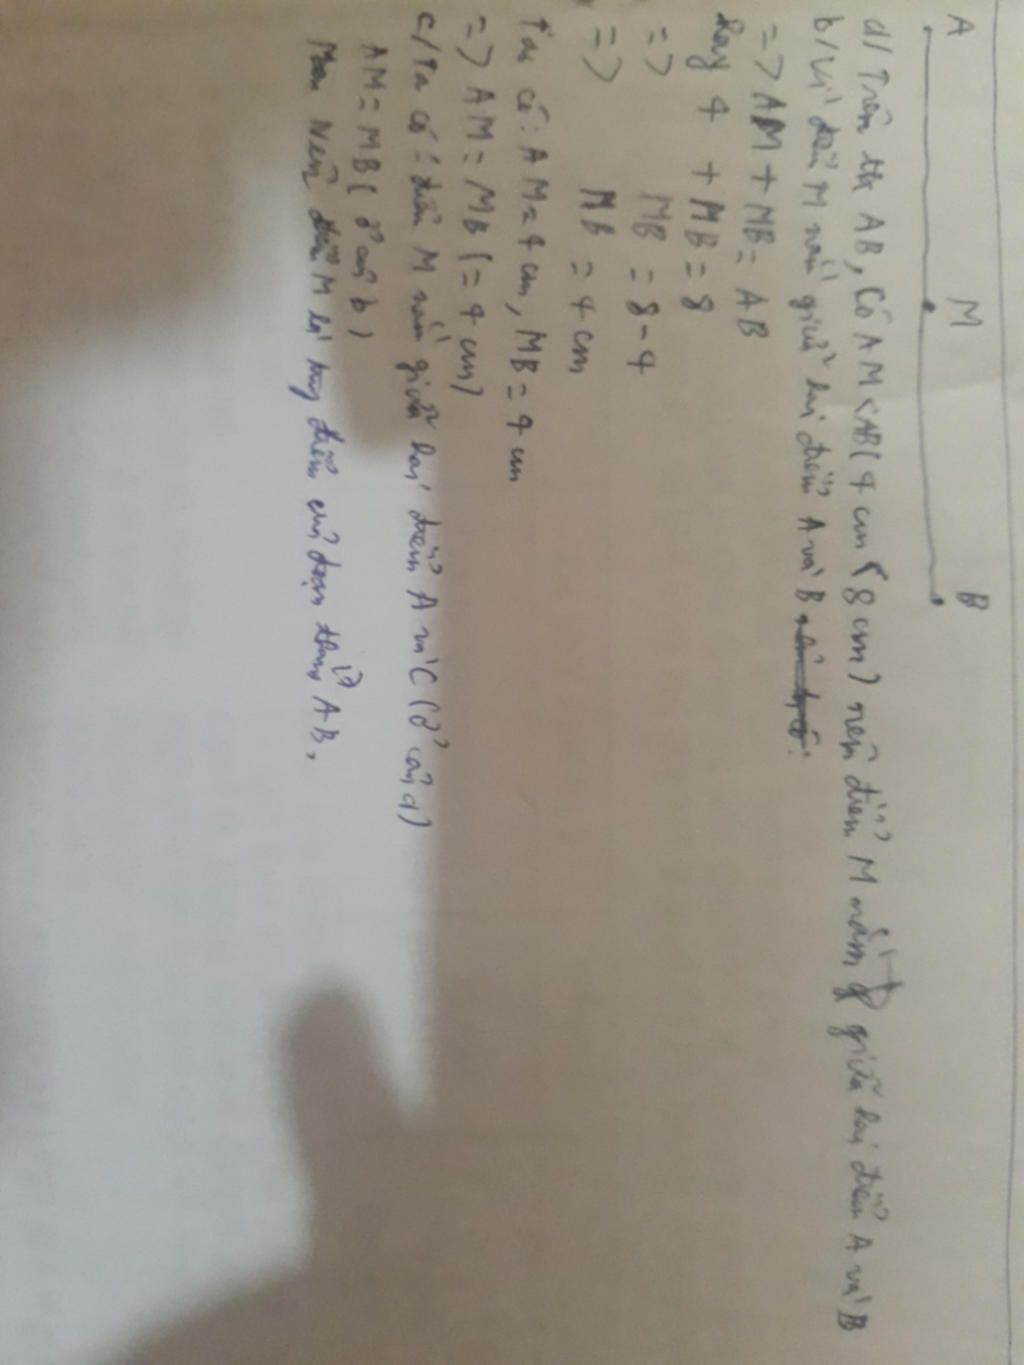 A M B
a/ Trên tia AB, Có AM < AB (4 cm < 8 cm) nên điểm M nằm giữa hai điểm A và B
b/ Vì điểm M nằm giữa hai điểm A và B
=> AM + MB = AB
hay 4 + MB = 8
=> MB = 8 - 4
=> MB = 4 cm
Ta có: AM = 4 cm, MB = 4 cm
=> AM = MB (= 4 cm)
c/ Ta có: điểm M nằm giữa hai điểm A và C (ở câu a)
AM = MB (ở câu b)
Nên điểm M là trung điểm của đoạn thẳng AB.